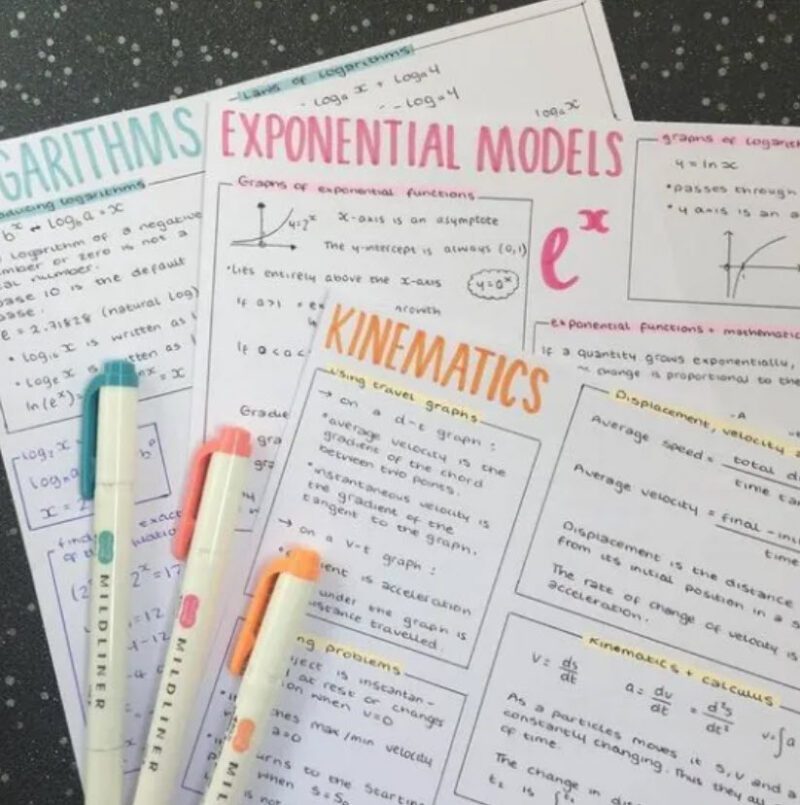 Laws of logarithms
logₐ x + logₐ y
- logₐ y
logₐ x
GARITHMS
logarithms
bˣ ↔ log_b a = x
logarithm of a negative
or zero is not a
number.
base 10 is the default
base.
e = 2.71828 (natural log)
• log₁₀ x is written as
• logₑ x is written as
ln(eˣ) = x
log₂ x =
x = 2
2ˣ = 17
= 12
EXPONENTIAL MODELS
Graphs of exponential functions
y=2ˣ
x-axis is an asymptote
The y-intercept is always (0,1)
• Lies entirely above the x-axis
y=aˣ
If a>1 =
growth
If 0<a<
eˣ
graphs of logarith
y = ln x
• passes through
• y axis is an a
exponential functions + mathematic
If a quantity grows exponentially,
change is proportional to the
KINEMATICS
Using travel graphs
→ on a d-t graph :
• average velocity is the
gradient of the chord
between two points.
• instantaneous velocity is
the gradient of the
tangent to the graph.
→ on a v-t graph :
ient is acceleration
under the graph is
distance travelled.
ng problems
ject is instantan-
at rest or changes
on when v=0
max/min velocity
a=0
urns to the starting
when s=s₀
Displacement, velocity
Average speed = total d
time ta
Average velocity = final - ini
time
Displacement is the distance
from its initial position in a s
The rate of change of velocity is
acceleration.
Kinematics + calculus
v = ds/dt
a = dv/dt = d²s/dt²
v = ∫a
As a particles moves it s, v and a
constantly changing. Thus they are
of time.
The change in dis
t₂ is ∫
MILDLINER
MILDLINER
MIL